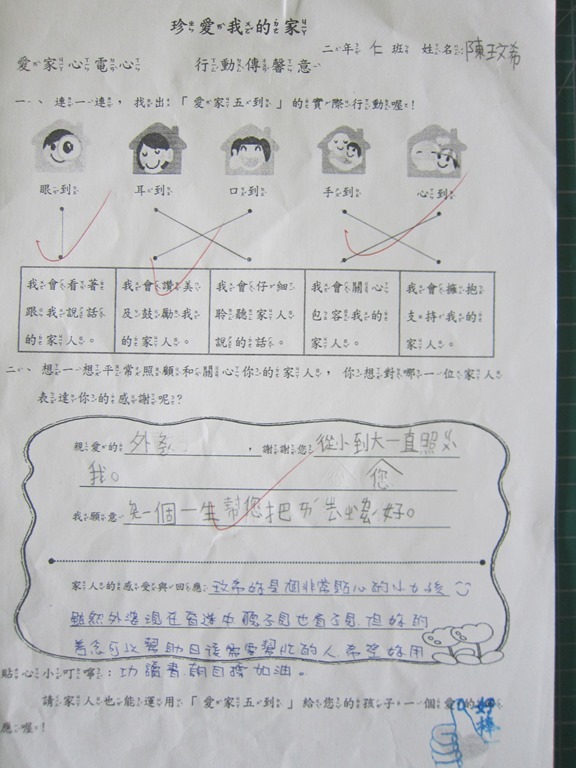 珍愛我的家
二年仁班 姓名陳玟希
愛家心電心 行動傳馨意
一、連一連,找出「愛家五到」的實際行動喔!
眼到 耳到 口到 手到 心到
我會看著跟我說話的家人。
我會讚美及鼓勵我的家人。
我會仔細聆聽家人說的話。
我會關心包容我的家人。
我會擁抱支持我的家人。
二、想一想平常照顧和關心你的家人,你想對哪一位家人
表達你的感謝呢?
親愛的外婆,謝謝您從小到大一直照
我。 您
我願意 一個一生幫您把 好。
家人的感受與回應 玟希妳是個非常貼心的小女孩
雖然外婆現在 但妳的
善念可以幫助日後需要幫忙的人 希望妳用
貼心小叮嚀: 功讀書 朝目標加油。
請家人也能運用「愛家五到」給您的孩子,一個愛的
應喔!
好棒